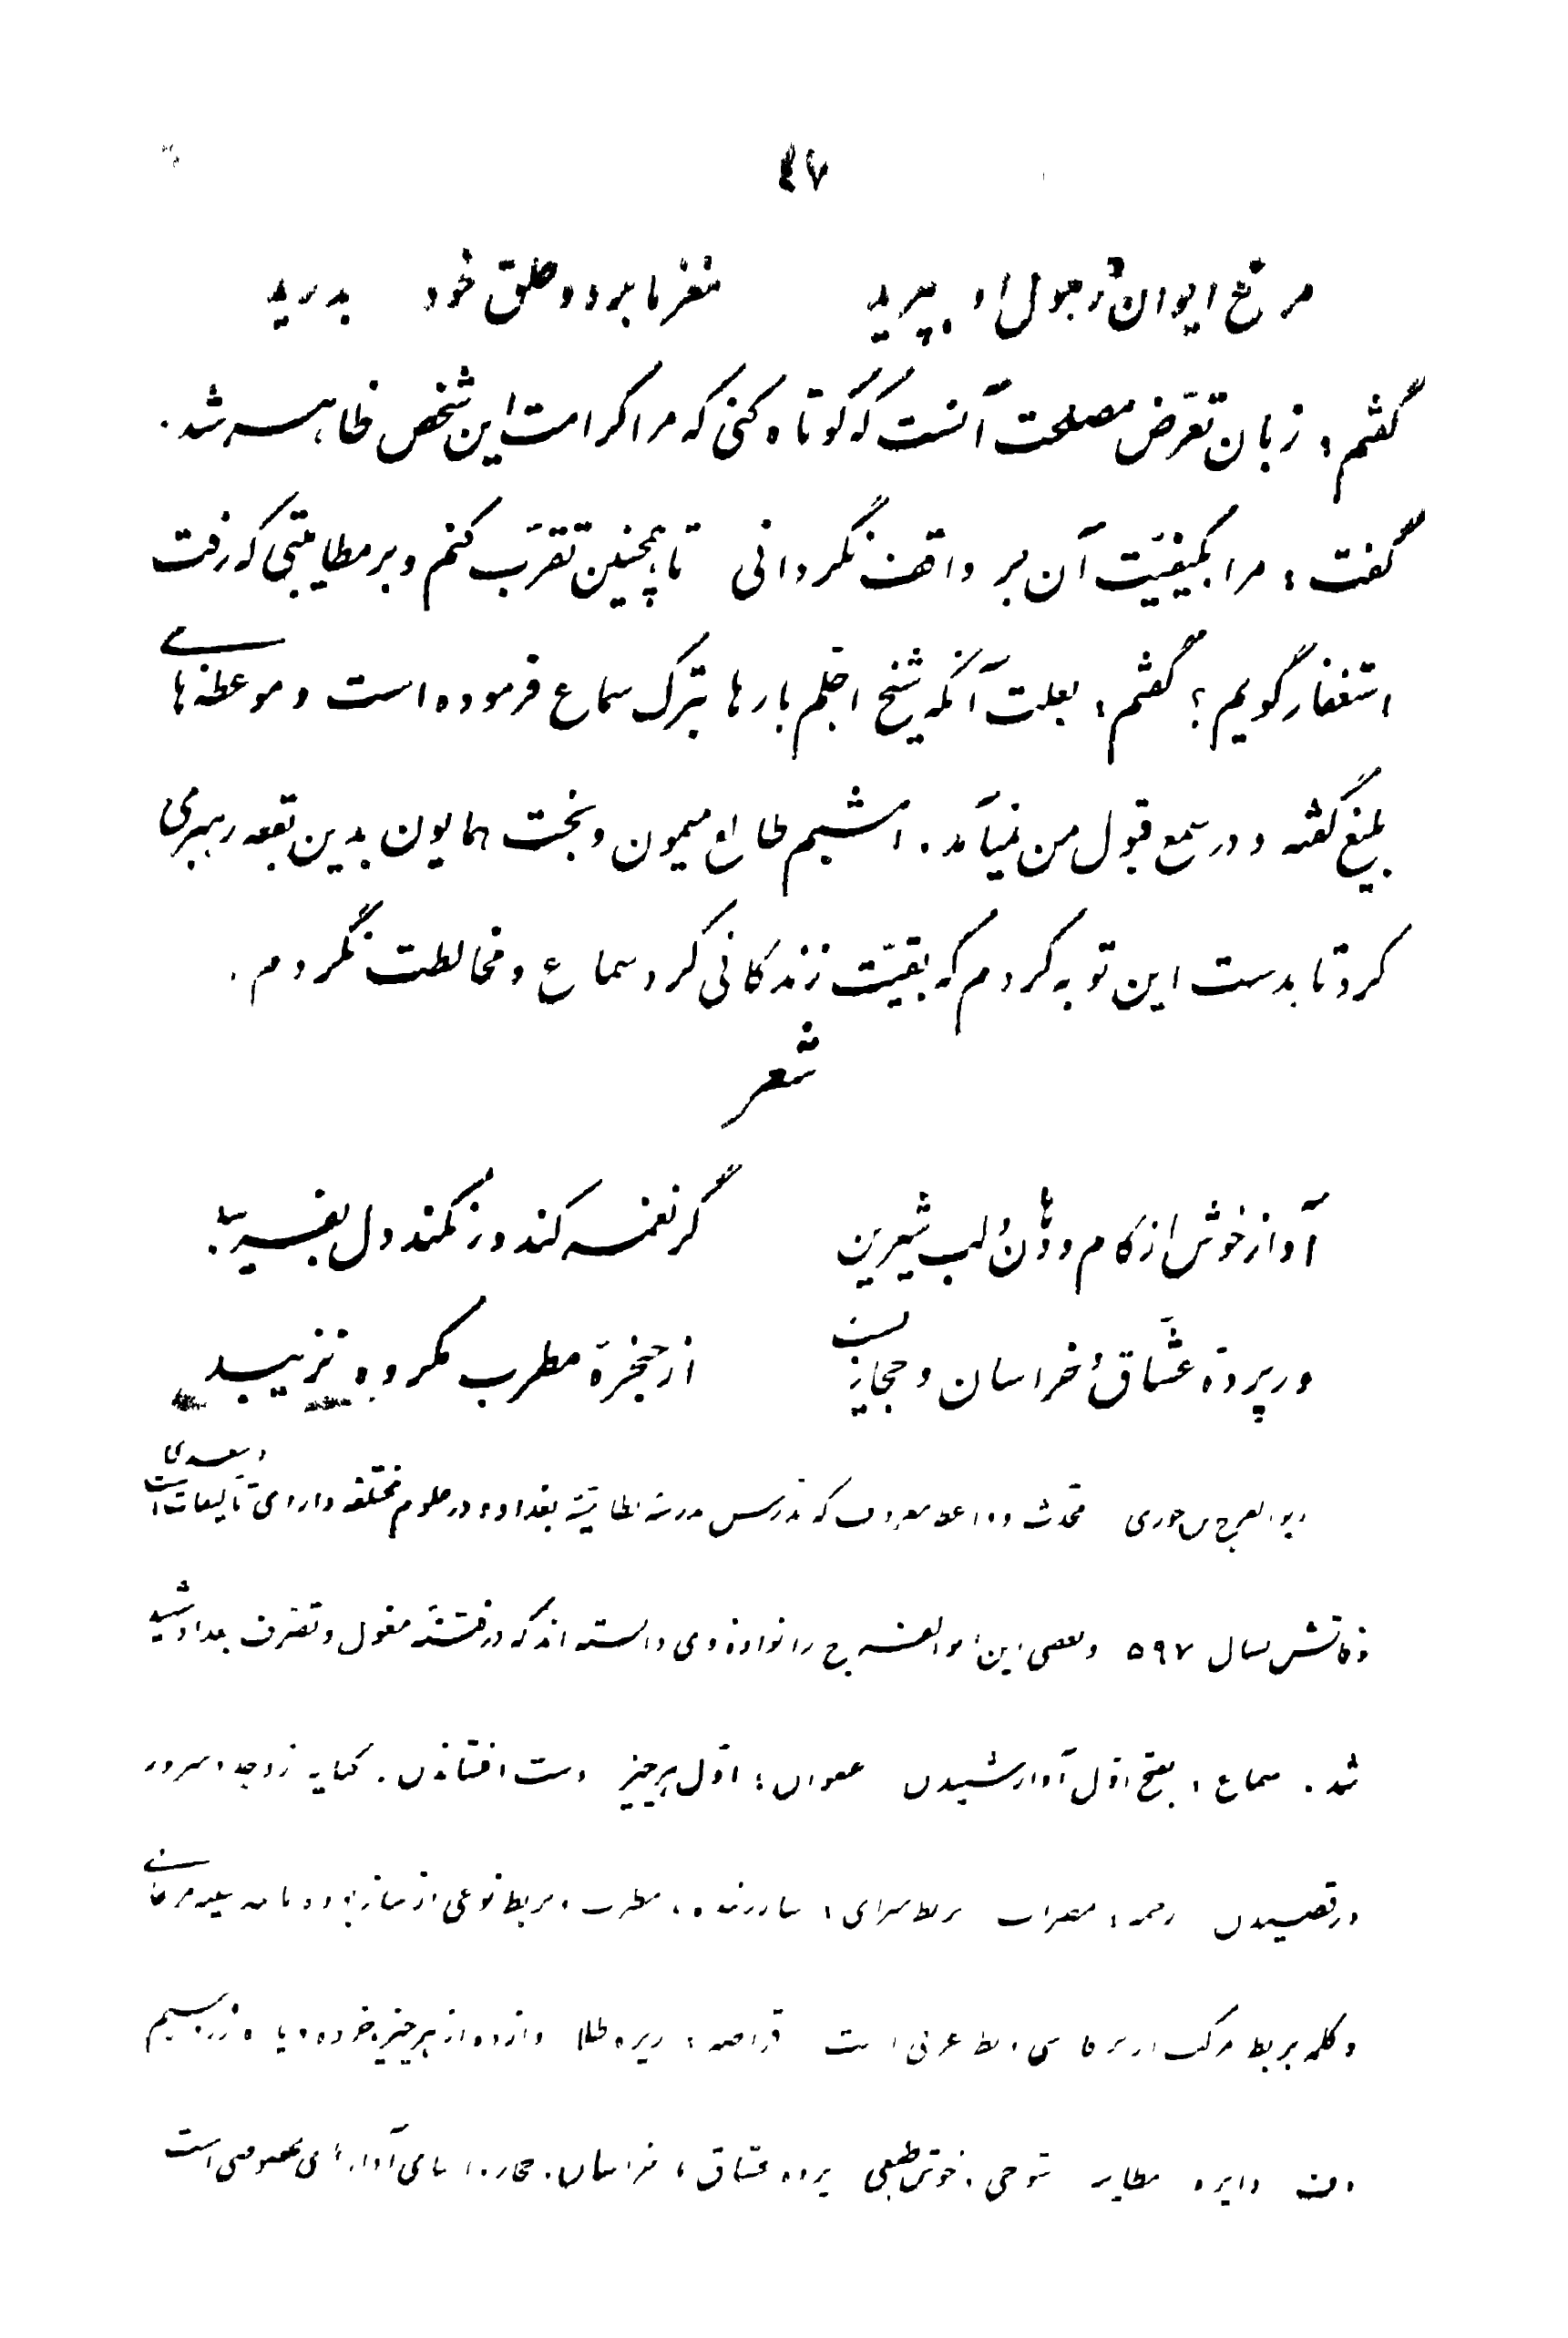 ٤٧
مرغ ایوان ز هول او بپرید مغز ما برد و حلق خود بدرید
گفتم: زبان تعرّض مصلحت آنست که کوتاه کنی که مرا کرامت این شخص ظاهر شد.
گفت: مرا بکیفیّت آن بر واقف نگردانی تا همچنین تقرّب کنم و بر مطایبتی که رفت
استغفار گویم؟ گفتم: بعلت آنکه شیخ اجلم بارها بترک سماع فرموده است و موعظه‌های
بلیغ گفته و در سمع قبول من نیآمد. امشبم طالع میمون و بخت همایون بدین بقعه رهبری
کرد تا بدست این توبه کردم که بقیّت زندگانی گرد سماع و مخالطت نگردم.
شعر
آواز خوش از کام و دهان و لب شیرین گر نغمه کند ور نکند دل بفریبد
ور پردهٔ عشّاق و خراسان و حجازست از حنجرهٔ مطرب مکروه نزیبد
ابوالفرج بن جوزی محدّث و واعظ معروف که مدرّس مدرسه نظامیّهٔ بغداد و در علوم مختلفه دارای تألیفات است
وفاتش بسال ۵۹۷ وبعضی این ابوالفرج را نواده وی دانسته‌اند که در فتنهٔ مغول و تصرّف بغداد شهید
شد. سماع: بفتح اوّل آواز شنیدن عنفوان: اوّل هر چیز دست افشاندن. کنایه از وجد و سرور
و رقصیدن زخمه: مضراب بربط سرای: سازنده، مطرب و بربط نوعی از ساز
و کلمه بربط مرکب از بر فارسی و بط عربی است قراضه: ریزه طلا و از هر چیز خرده زر و سیم
دف دایره مطایبه شوخی، خوش طبعی پرده عشاق، خراسان، حجاز: اسامی آوازهای مخصوصی است